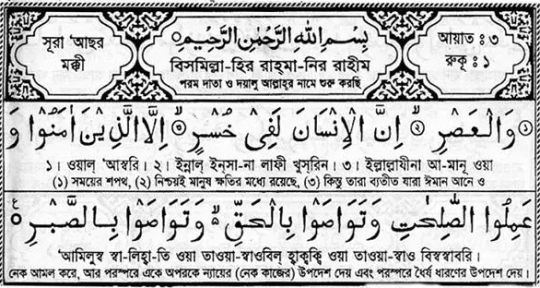 সূরা 'আছর
মক্কী
بِسْمِ اللهِ الرَّحْمٰنِ الرَّحِيْمِ
বিসমিল্লা-হির রাহ্‌মা-নির রাহীম
পরম দাতা ও দয়ালু আল্লাহ্‌র নামে শুরু করছি
আয়াত : ৩
রুকূ : ১
وَالْعَصْرِ ۝ اِنَّ الْاِنْسَانَ لَفِيْ خُسْرٍ ۝ اِلَّا الَّذِيْنَ اٰمَنُوْا وَ
১। ওয়াল্ 'আস্বরি। ২। ইন্নাল্ ইন্‌সা-না লাফী খুস্‌রিন। ৩। ইল্লাল্লাযীনা আ-মানূ ওয়া
(১) সময়ের শপথ, (২) নিশ্চয়ই মানুষ ক্ষতির মধ্যে রয়েছে, (৩) কিন্তু তারা ব্যতীত যারা ঈমান আনে ও
عَمِلُوا الصّٰلِحٰتِ وَتَوَاصَوْا بِالْحَقِّ ۙ وَتَوَاصَوْا بِالصَّبْرِ ۝
'আমিলুস্ব স্বা-লিহ্বা-তি ওয়া তাওয়া-স্বাওবিল্ হ্বাক্বক্বি ওয়া তাওয়া-স্বাও বিস্বস্বাবরি।
নেক আমল করে, আর পরস্পরে একে অপরকে ন্যায়ের (নেক কাজের) উপদেশ দেয় এবং পরস্পরে ধৈর্য ধারণের উপদেশ দেয়।